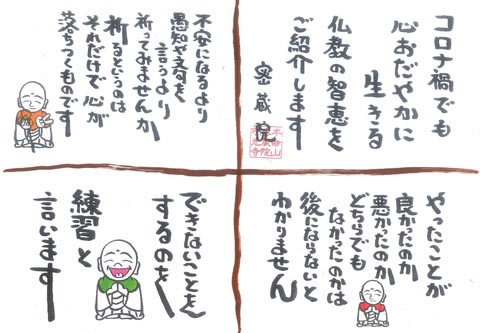 コロナ禍でも
心おだやかに
生きる
仏教の智恵を
ご紹介します
密蔵院
不安になるより
愚知や文句を
言うより
祈ってみませんか
祈るというのは
それだけで心が
落ちつくものです
やったことが
良かったのか
悪かったのか
どちらでも
なかったのかは
後にならないと
わかりません
できないことを
するのを
練習と
言います